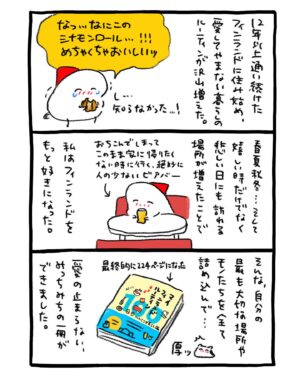 12年以上通い続けた
フィンランドに住み始め、
愛してやまない暮らしの
ルーティンが沢山増えた。
なっ…なにこの
シナモンロール…!!!
めちゃくちゃおいしいッ
し…
知らなかった…!
春夏秋冬…そして
嬉しい時だけでなく
悲しい日にも訪れる
場所が増えたことで
おちこんでしまって
このまま家に帰りたく
ない時に行く、絶妙に
人の少ないビアバー
私はフィンランドを
もっと好きになった。
そんな、自分の
最も大切な場所や
モノたちを全て
詰め込んで…
最終的に224ページになった
厚ッ
愛の止まらない、
みっちみちの一冊が
できました。